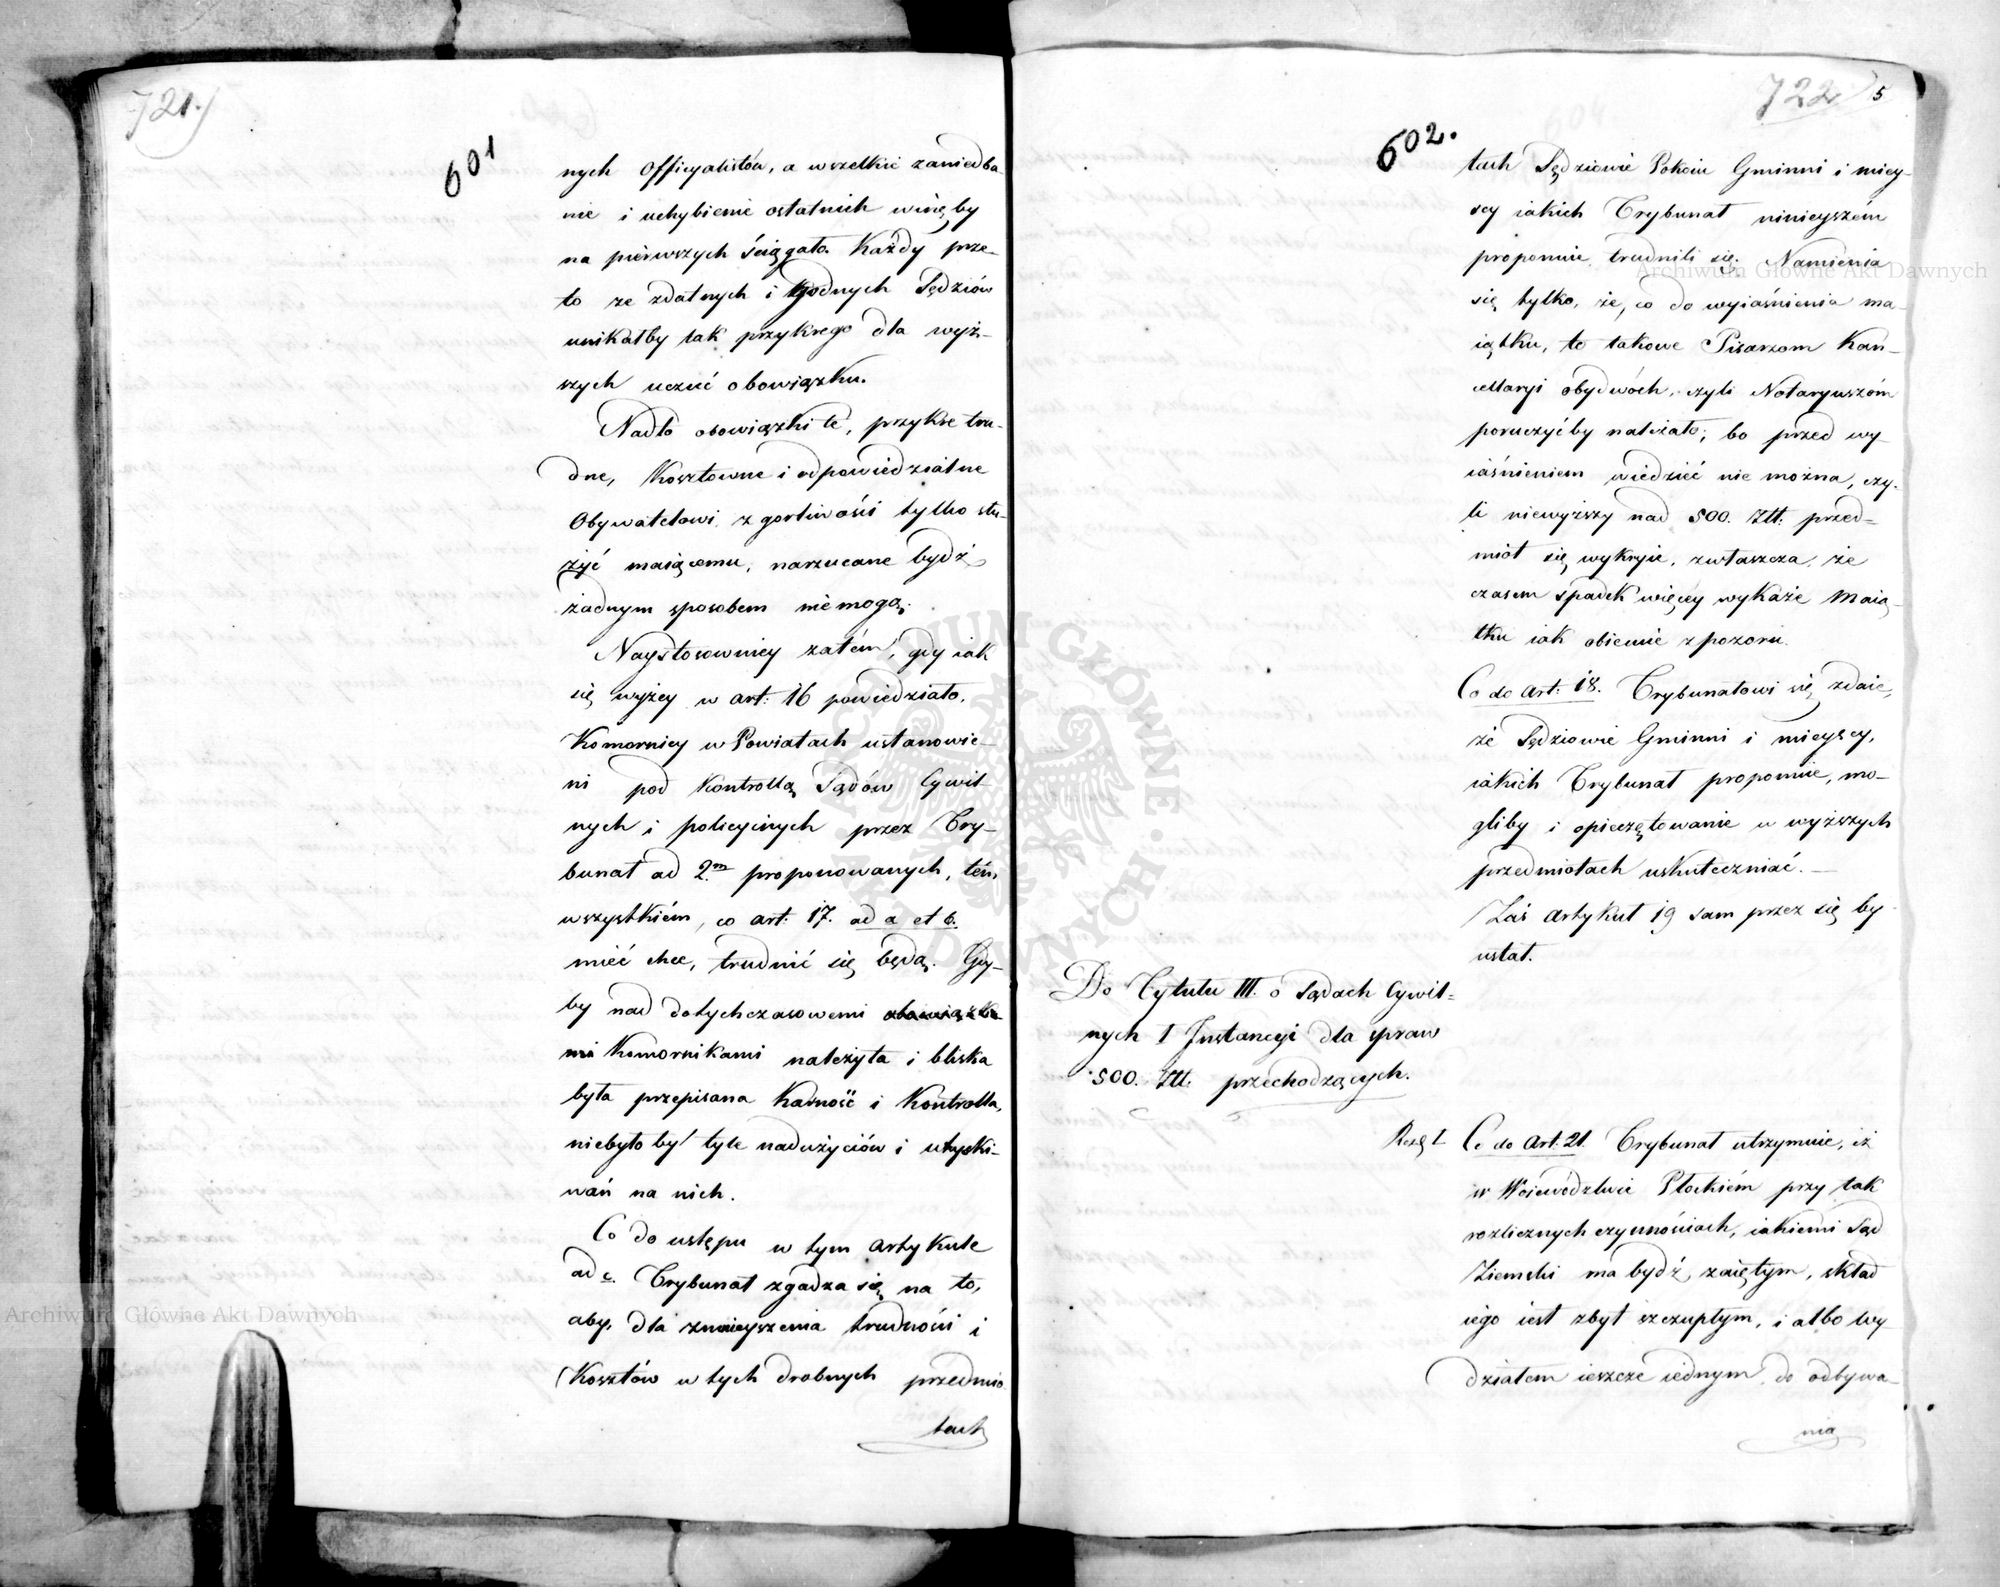 721.)
601
nych officyalistów, a wszelkie zaniedba-
nie i uchybienie ostatnich winęby
na pierwszych ściągało. Każdy prze-
to ze zdatnych i godnych Sędziów
unikałby tak przykrego dla wyż-
szych uczuć obowiązku.
Nadto obowiązki te, przykre tru-
dne, kosztowne i odpowiedzialne
Obywatelowi z gorliwości tylko słu-
żyć maiącemu, narzucane bydź
żadnym sposobem niemogą.
Naystosowniey zatém, gdy iak
się wyżey w art: 16 powiedziało,
Komornicy w Powiatach ustanowie-
ni pod kontrollą Sądów Cywil-
nych i policyinych przez Try-
bunał ad 2.m proponowanych, tém
wszystkiém, co art: 17. ad a et b.
mieć chce, trudnić się będą. Gdy-
by nad dotychczasowemi obowiązka-
mi Komornikami należyta i bliska
była przepisana karność i kontrolla,
niebyłoby tyle nadużyciów i utyski-
wań na nich.
Co do ustępu w tym artykule
ad c. Trybunał zgadza się na to,
aby, dla zmnieyszenia trudności i
kosztów w tych drobnych przedmio-
tach
722 5
602.
tach Sędziowie Pokoiu Gminni i miey-
scy iakich Trybunał ninieyszém
proponuie trudnili się. Namienia
się tylko, że, co do wyiaśnienia ma-
iątku, to takowe Pisarzom Kan-
cellaryi obydwóch, czyli Notaryuszóm
poruczyćby należało; bo przed wy
iaśnieniem wiedzieć nie można, czy-
li niewyższy nad 500. Złł. przed-
miot się wykryie, zwłaszcza, że
czasem spadek więcey wykaże maią-
tku iak obiecuie z pozoru.
Co do art: 18. Trybunałowi się zdaie,
że Sędziowie Gminni i mieyscy,
iakich Trybunał proponuie, mo-
gliby i opieczętowanie w wyższych
przedmiotach uskuteczniać. —
Zaś artykuł 19 sam przez się by
ustał.
Do Tytułu III. o Sądach Cywil-
nych I Instancyi dla spraw
500. Złł. przechodzących.
Co do Art: 21. Trybunał utrzymuie, iż
w Woiewództwie Płockiém przy tak
rozlicznych czynnościach, iakiemi Sąd
Ziemski ma bydź zaiętym, skład
iego iest zbyt szczupłym, i albo wy
działem ieszcze iednym do odbywa-
nia
Archiwum Główne Akt Dawnych
Archiwum Główne Akt Dawnych
ARCHIWUM GŁÓWNE AKT DAWNYCH